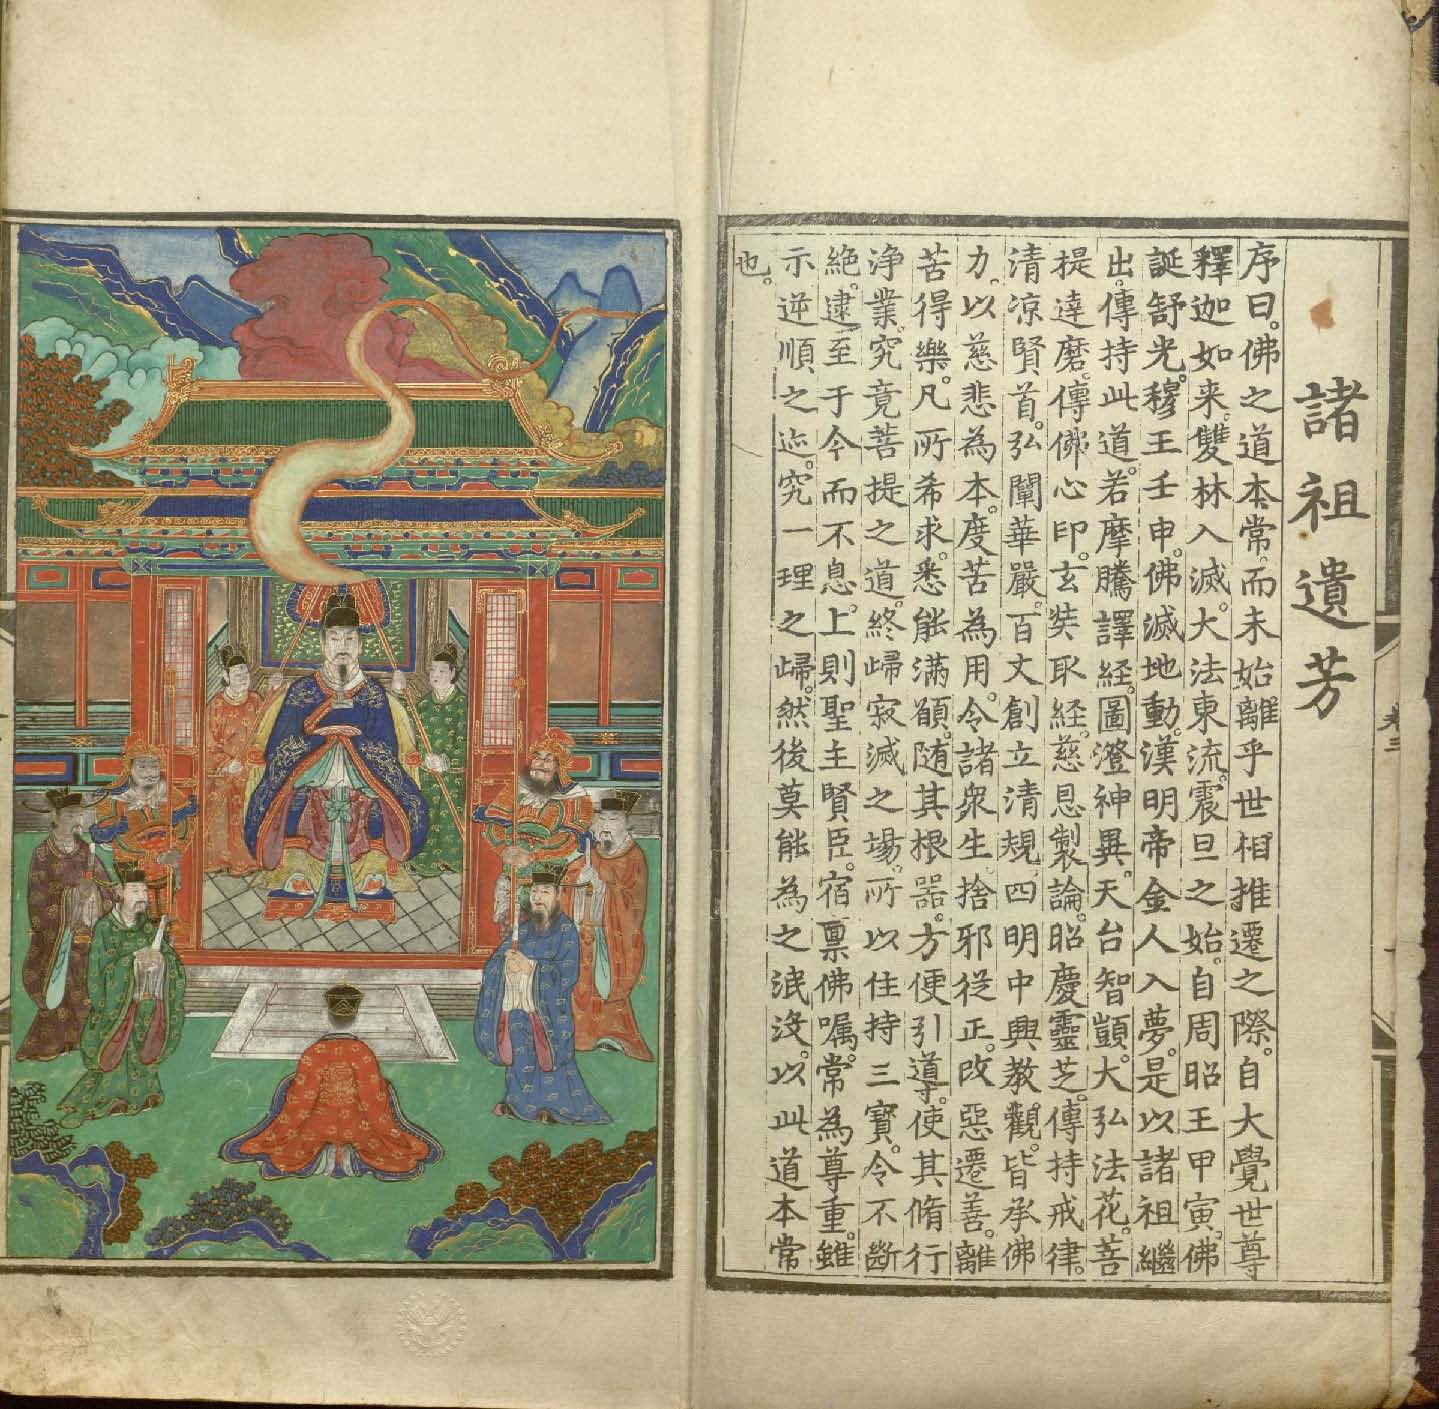 諸祖遺芳
序曰。佛之道本常。而未始離乎世相推遷之際。自大覺世尊
釋迦如来。雙林入滅。大法東流。震旦之始。自周昭王甲寅。佛
誕舒光。穆王壬申。佛滅地動。漢明帝金人入夢。是以諸祖繼
出。傳持此道。若摩騰譯経。圖澄神異。天台智顗。大弘法花。菩
提達磨。傳佛心印。玄奘取経。慈恩製論。昭慶靈芝。傳持戒律。
清涼賢首。弘闡華嚴。百丈創立清規。四明中興教觀。皆承佛
力。以慈悲為本。度苦為用。令諸衆生。捨邪從正。改惡遷善。離
苦得樂。凡所希求。悉能滿願。随其根器。方便引導。使其脩行
浄業。究竟菩提之道。終歸寂滅之場。所以住持三寳。令不斷
絶。逮至于今而不息。上則聖主賢臣。宿禀佛嘱。常為尊重。雖
示逆順之迹。究一理之歸。然後莫能為之泯沒。以此道本常
也。
卷三